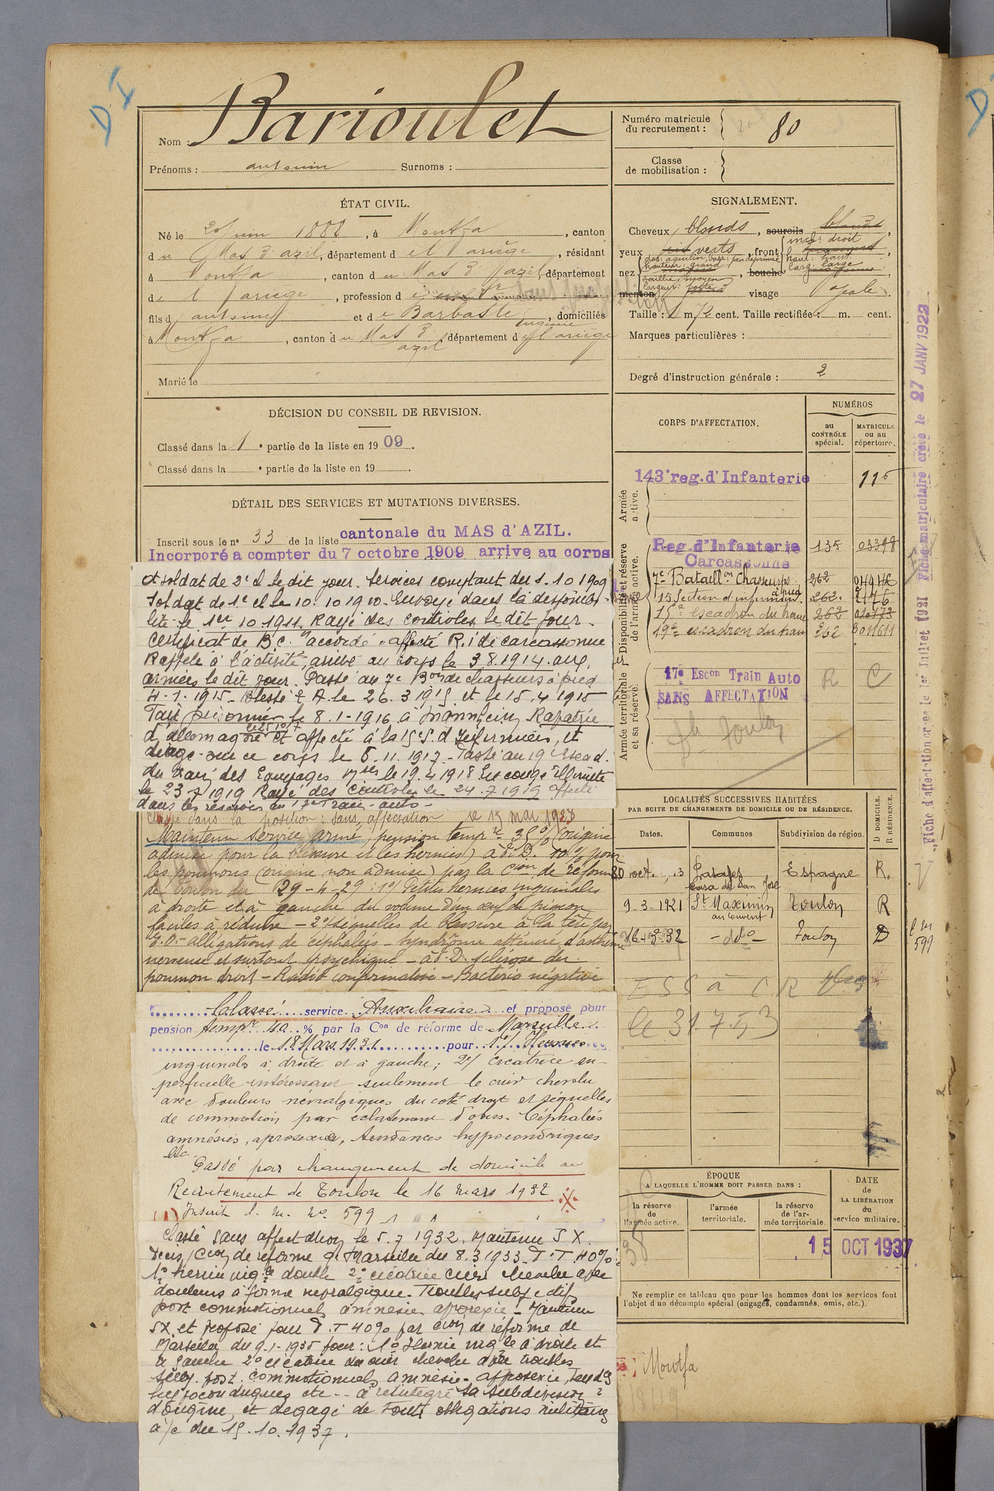 Nom Barioulet
Prénoms : antonin Surnoms :
ÉTAT CIVIL.
Né le 20 juin 1888, à Montfa, canton
du Mas d'azil, département de l'ariège, résidant
à Montfa, canton du Mas d'azil, département
de l'ariège, profession de
fils d'antonin et de Barbaste Eugénie, domiciliés
à Montfa, canton du Mas d'azil, département de l'ariège
Marié le
DÉCISION DU CONSEIL DE REVISION.
Classé dans la 1 e partie de la liste en 1909.
Classé dans la e partie de la liste en 19 .
DÉTAIL DES SERVICES ET MUTATIONS DIVERSES.
Inscrit sous le n° 33 de la liste cantonale du MAS d'AZIL.
Incorporé a compter du 7 octobre 1909 arrive au corps
et soldat de 2e cl le dit jour. Services comptant du 1.10 1909
Soldat de 1e cl le 10.10 1910. Envoyé dans la disponibi-
lité le 1er 10 1911. Rayé des controles le dit jour.
Certificat de B.C. accordé affecté R.I de carcassonne
Rappelé à l'activité, arrivé au corps le 3.8.1914. aux
armées le dit jour. Passé au 7e Bon de chasseurs à pied
4-1-1915. Blessé le 26.3 1915 et le 15.4 1915
Fait prisonnier le 8.1-1916 à Mannheim, Rapatrié
d'allemagne et affecté à la 15e S. d'Infirmiers, et
dirigé sur ce corps le 6.11.1917. Passé au 19 Escad.
du train des Equipages mres le 19.4 1918 En congé illimité
le 23.7 1919 Rayé des controles le 24.7 1919 affecté
dans les réserves au 17e Train-auto-
Classé dans la position : Sans affectation le 15 mai 1928
Maintenu Service armé, pension temp re 35% (origine
admise pour la blessure et les hernies) à P.D. 10% pour
les poumons (origine non admise) par la Con de réforme
de Toulon du 29-4-29 : 1° Petites hernies inguinales
à droite et à gauche du volume d'un œuf de pigeon
faciles à réduire - 2° séquelles de blessure à la tête par
E.O. - allégations de céphalées - syndrôme atténué d'asthénie
nerveuse et surtout psychique - à P.D. sclérose du
poumon droit - Radio confirmative - Bactério négative
Classé service Auxiliaire et proposé pour
pension temp re 40 % par la Con de réforme de Marseille
le 18 Mars 1931 pour 1°/ Hernies
inguinales à droite et à gauche ; 2°/ cicatrice su-
perficielle intéressant seulement le cuir chevelu
avec douleurs névralgiques du coté droit et séquelles
de commotion par éclatement d'obus. Céphalées
amnésies, aprosexie, tendances hypocondriques
etc
Passé par changement de domicile au
Recrutement de Toulon le 16 mars 1932
(1) Inscrit l. m. no 599
Classé sans affectation le 5.7 1932. Maintenu SX.
Vers/ Con de réforme de Marseille du 8.3 1933. P.T 40% :
1° hernie ing le double 2° cicatrice cuir chevelu avec
douleurs à forme névralgique. Troubles subjectifs
post commotionnels amnésie, aprosexie - Maintenu
SX et proposé pour P.T 40% par Con de réforme de
Marseille du 9.1-1935 pour : 1° Hernie ing le à droite et
à gauche 2° cicatrice du cuir chevelu avec troubles
subj. post. commotionnels amnésie, aprosexie, tend ces
hypocondriaques etc -- a réintégré sa subdivision
d'origine, et dégagé de toutes obligations militaires
a/c du 15.10.1937.
Numéro matricule
du recrutement : 80
Classe
de mobilisation :
SIGNALEMENT.
Cheveux blonds, sourcils blonds,
yeux verts, front
incl. droit
haut. haut.
larg. large
nez, bouche
menton visage ovale
Taille : 1 m. cent. Taille rectifiée : m. cent.
Marques particulières :
Degré d'instruction générale : 2
CORPS D'AFFECTATION.
NUMÉROS
au
CONTRÔLE
spécial.
MATRICULE
ou au
répertoire.
Armée
active.
143e reg. d'Infanterie
Disponibilité et réserve
de l'armée active.
Reg. d'Infanterie 135
Carcassonne
7e Bataillon Chasseurs à pied 262
15 Section d'infirmiers 262
15e escadron du train 262
19e escadron du train 262
Armée territoriale
et sa réserve.
17e Escon Train Auto R C
SANS AFFECTATION
Toulon
LOCALITÉS SUCCESSIVES HABITÉES
PAR SUITE DE CHANGEMENTS DE DOMICILE OU DE RÉSIDENCE.
Dates. Communes Subdivision de région. D DOMICILE. R RÉSIDENCE.
20 oct. 13 casa de San José Espagne R.
9-3-1921 St Maximin au couvent Toulon R
16-3-32 - do - Toulon D
l m 599
le 31 7 53
ÉPOQUE
A LAQUELLE L'HOMME DOIT PASSER DANS :
la réserve
de
l'armée active.
l'armée
territoriale.
la réserve
de l'ar-
mée territoriale.
DATE
de
LA LIBÉRATION
du
service militaire.
15 OCT 1937
Ne remplir ce tableau que pour les hommes dont les services font
l'objet d'un décompte spécial (engagés, condamnés, omis, etc.).
Montfa
Fiche d'affectation créée le 1er Juillet 1921 Fiche matriculaire créée le 27 JANV 1922